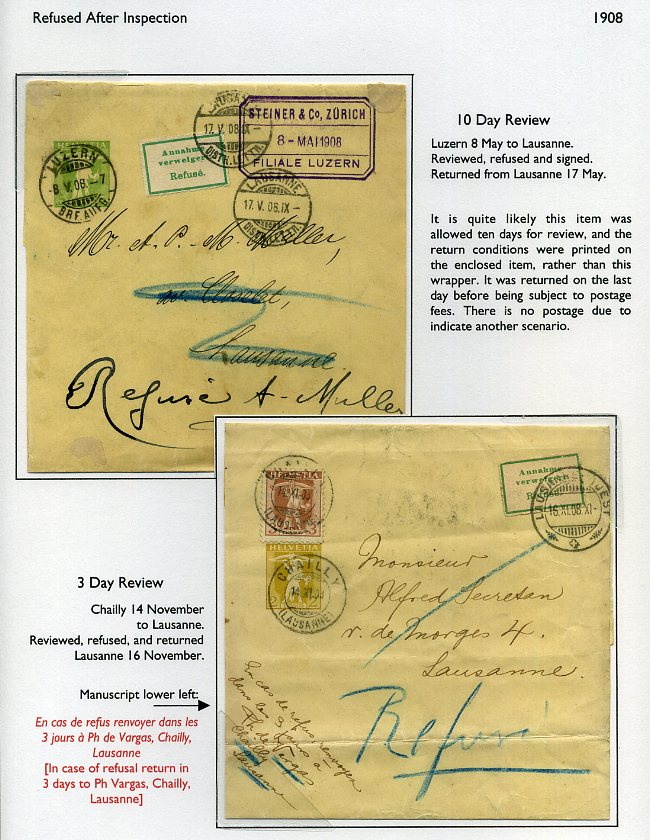 Refused After Inspection
1908
10 Day Review
Luzern 8 May to Lausanne.
Reviewed, refused and signed.
Returned from Lausanne 17 May.
It is quite likely this item was
allowed ten days for review, and the
return conditions were printed on
the enclosed item, rather than this
wrapper. It was returned on the last
day before being subject to postage
fees. There is no postage due to
indicate another scenario.
HELVETIA
LUZERN
8 V. 08. - 7
BRF. AUFG.
Annahme
verweigert
Refusé.
LAUSANNE
17. V. 08. IX -
DISTR. LETTR.
STEINER & Co, ZÜRICH
8 - MAI 1908
FILIALE LUZERN
LAUSANNE
17. V. 08. IX -
DISTR. LETTR.
Mr. A. P. M. Muller,
Lausanne
Refusé A - Muller
3 Day Review
Chailly 14 November
to Lausanne.
Reviewed, refused, and returned
Lausanne 16 November.
Manuscript lower left:
En cas de refus renvoyer dans les
3 jours à Ph de Vargas, Chailly,
Lausanne
[In case of refusal return in
3 days to Ph Vargas, Chailly,
Lausanne]
HELVETIA
3
HELVETIA
2
CHAILLY
14. XI. 08
(LAUSANNE)
Annahme
verweigert
Refusé.
LAUSANNE
16. XI. 08. XI -
Monsieur
Alfred Secretan
r. de Morges 4.
Lausanne.
Refusé
En cas de refus renvoyer
dans les 3 jours à
Ph de Vargas
Chailly
Lausanne